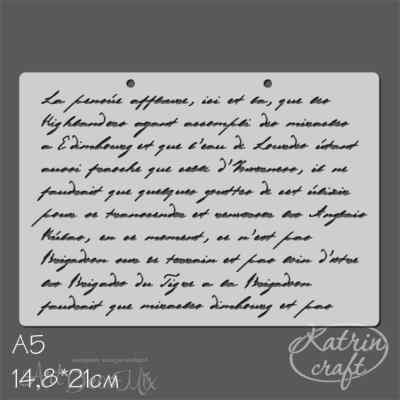 La pensée affleure, ici et la, que les
Highlanders ayant accompli des miracles
a Edimbourg et que l'eau de Lourdes étant
aussi fraeche que celle d'Inverness, il ne
faudrait que quelques gouttes de cet élixir
pour se transcender et renverser les Anglais
Hélas, en ce moment, ce n'est pas
Brigadoon sur ce terrain et pas loin d'etre
les Brigades du Tigre a la Brigadoon
faudrait que miracles dimbourg et pas
A5
14,8*21см
Katrin
craft